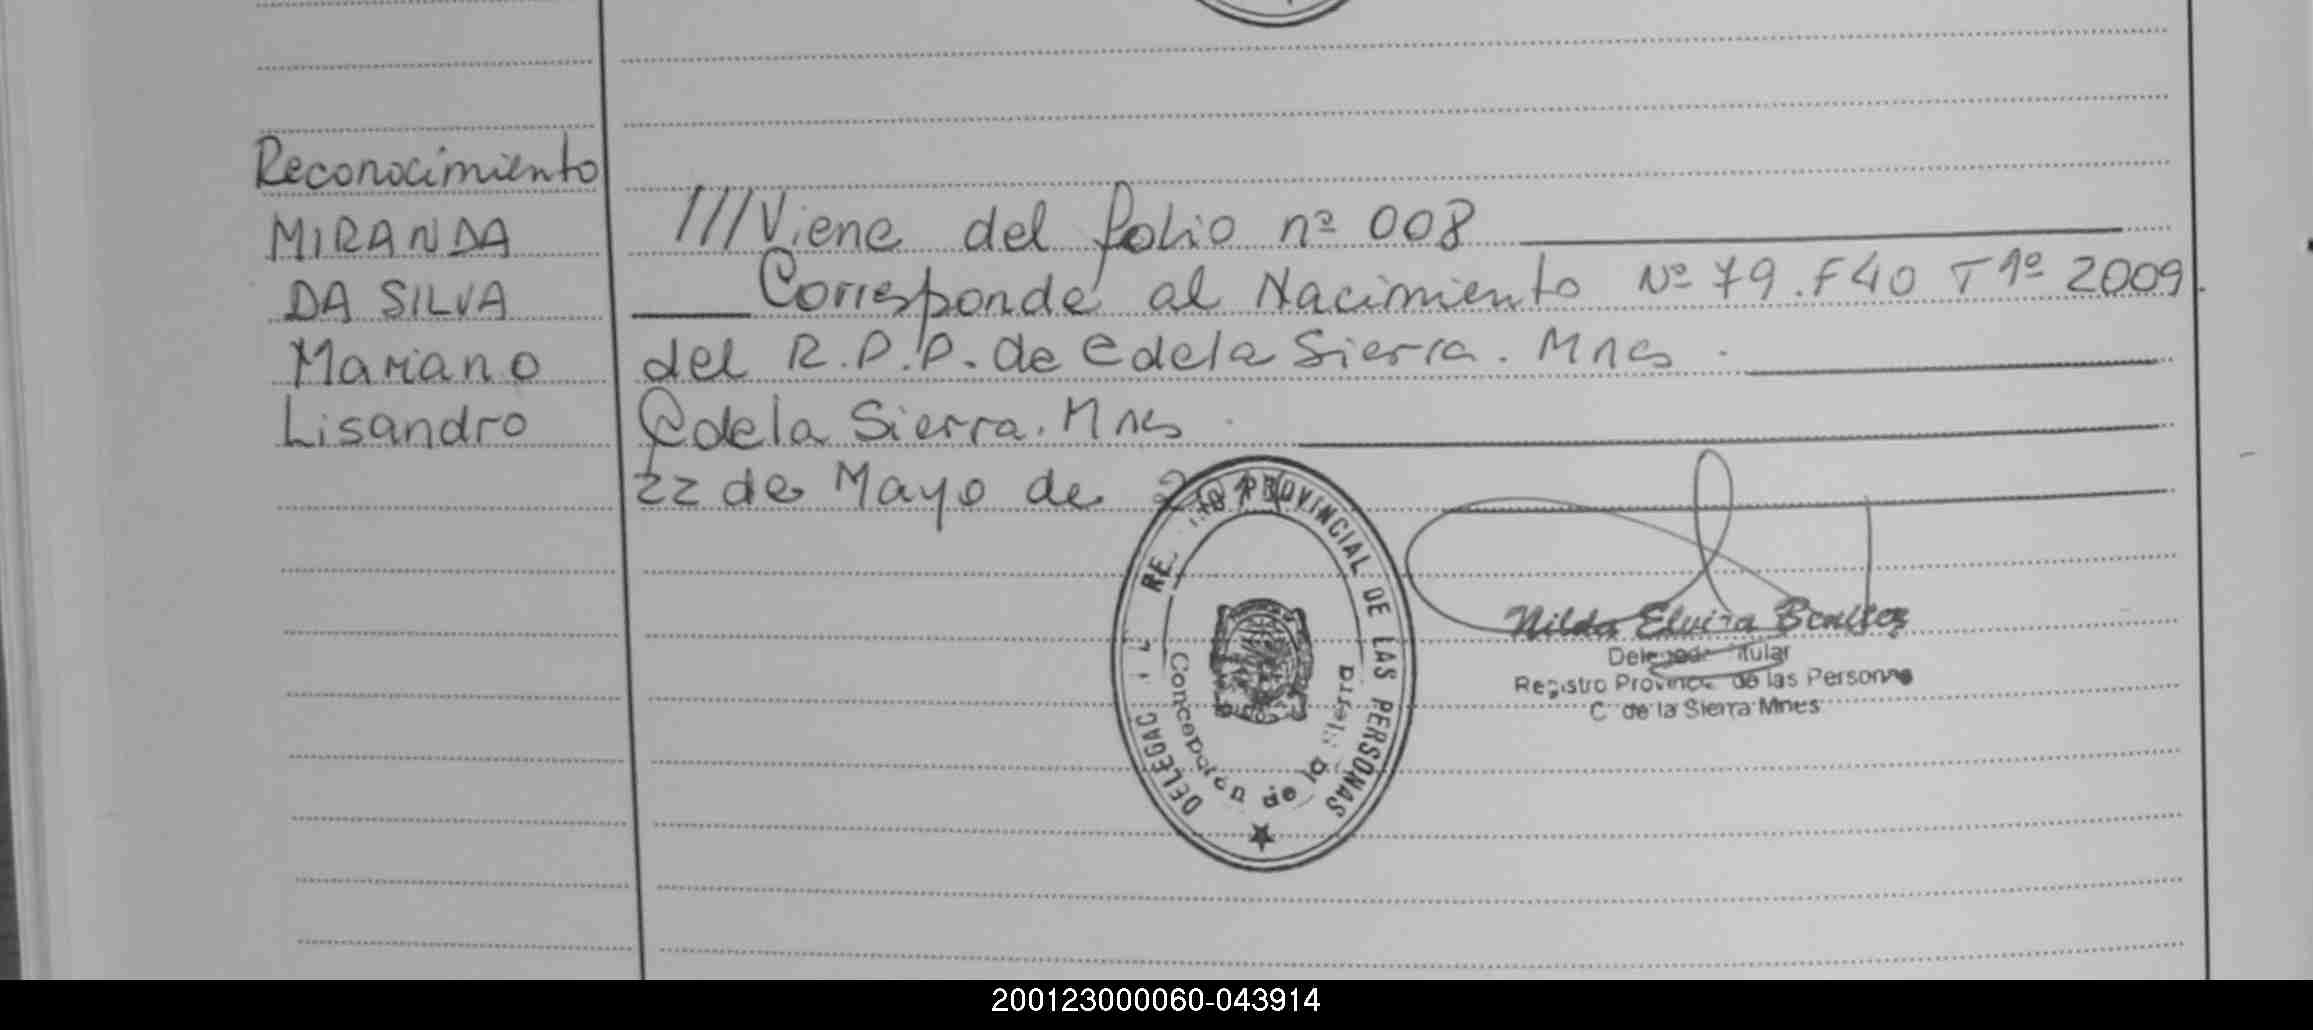 Reconocimiento
MIRANDA
DA SILVA
Mariano
Lisandro
///Viene del folio nº 008
Corresponde al Nacimiento Nº 79. F40 T 1º 2009.
del R.P.P. de C de la Sierra. Mnes.
C de la Sierra. Mnes.
22 de Mayo de
PROVINCIAL DE LAS PERSONAS
Concepción de la Sierra
Nilda Elvira Benitez
Titular
Registro Provincial de las Personas
C. de la Sierra Mnes
200123000060-043914